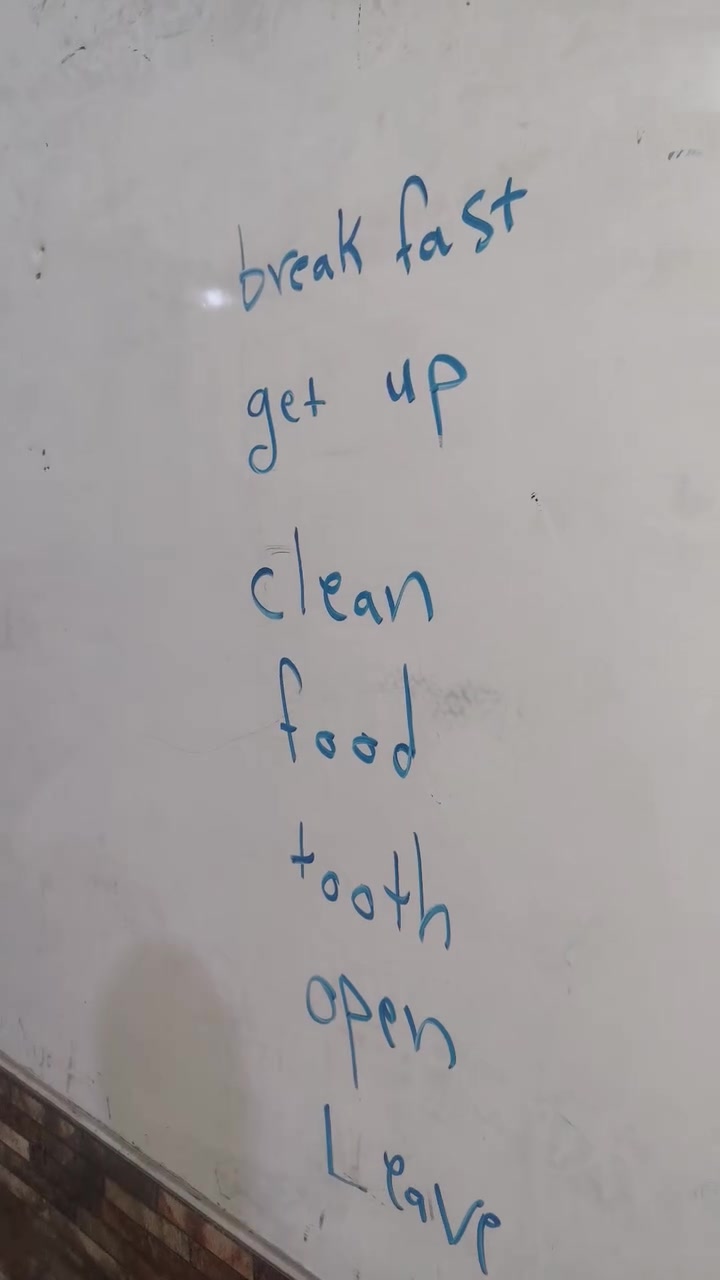 break fast
get up
clean
food
tooth
open
Leave